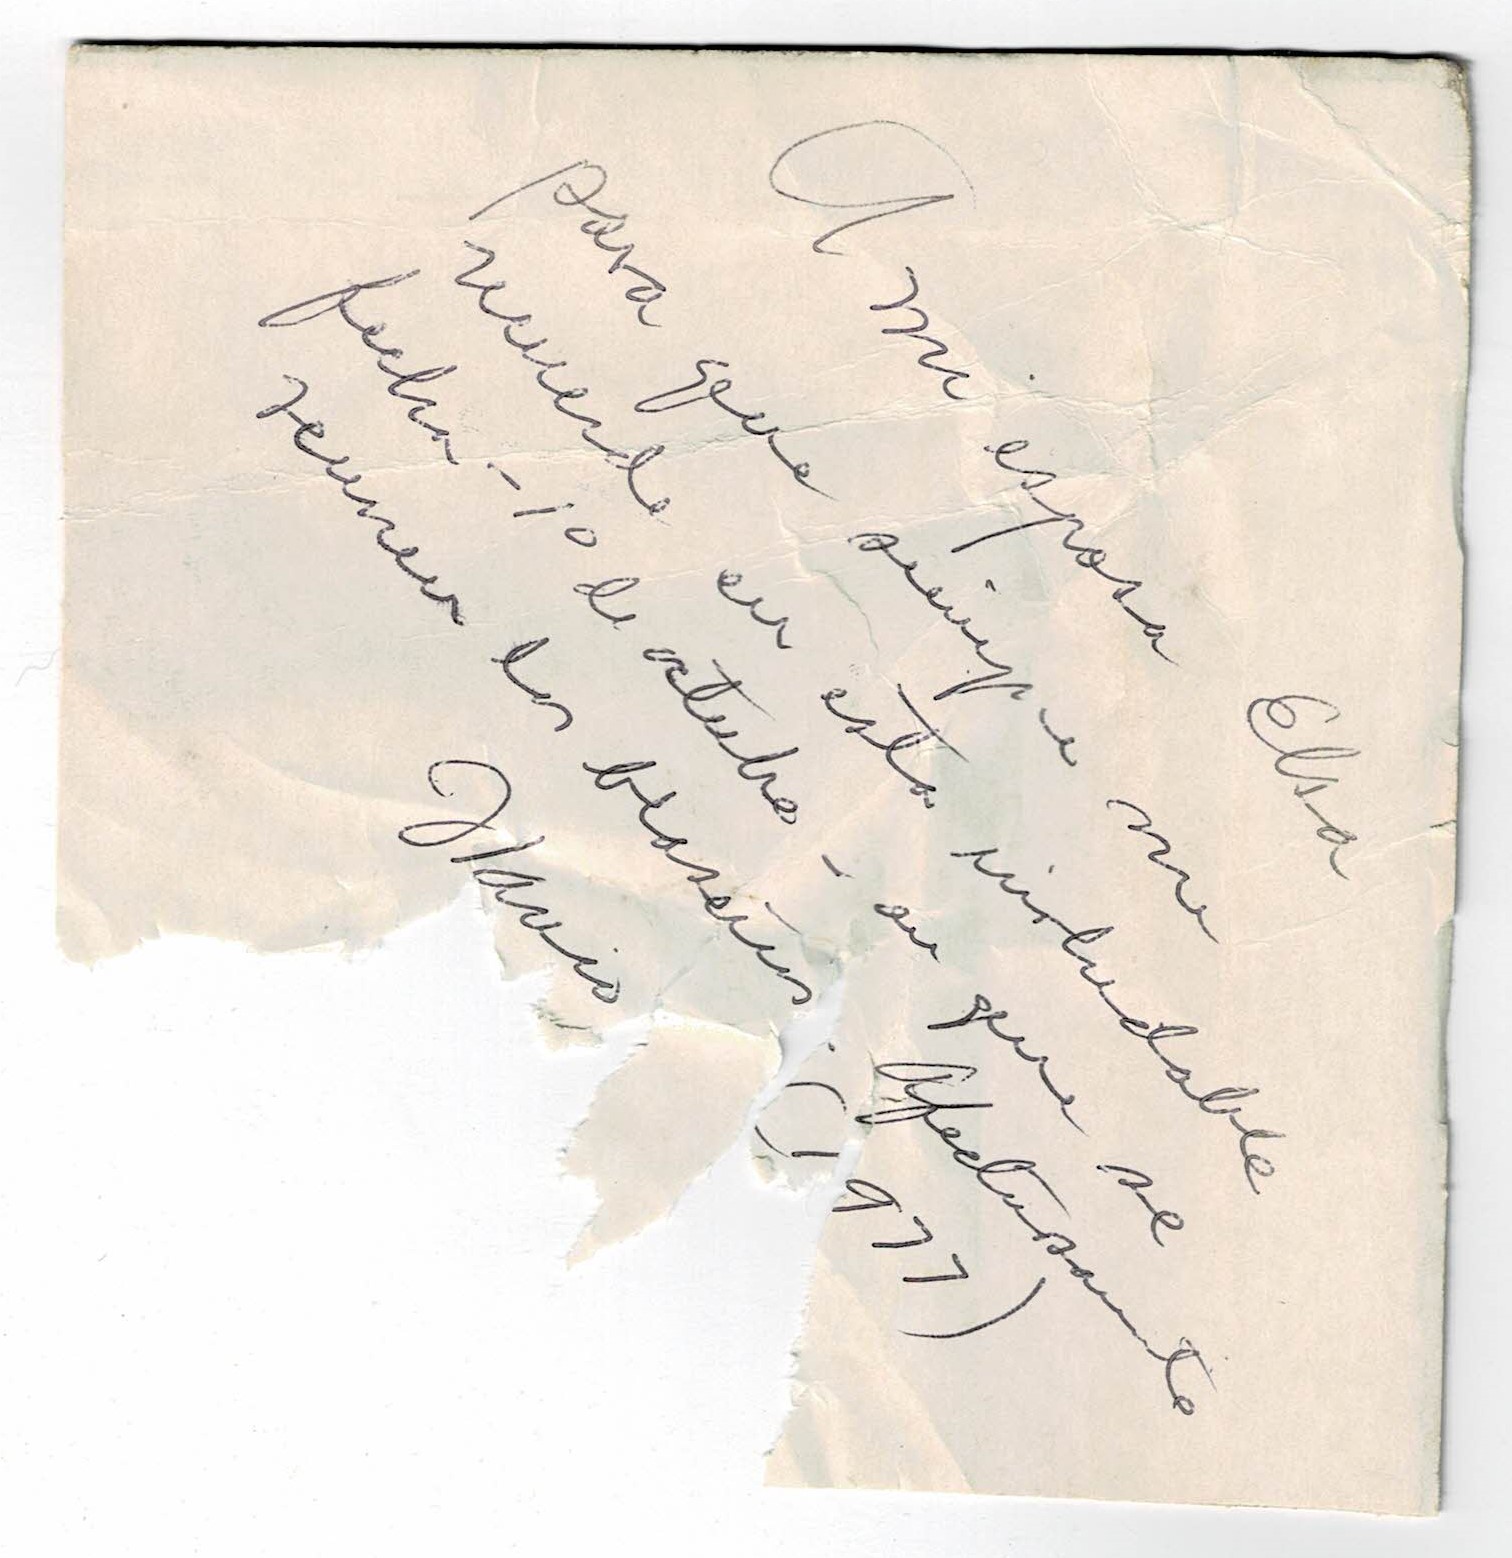 A mi esposa Elsa
para que siempre me
recuerde en esta inolvidable
fecha - 10 de octubre - en que se
reunen los . Afectuosamente
Mario (1977)